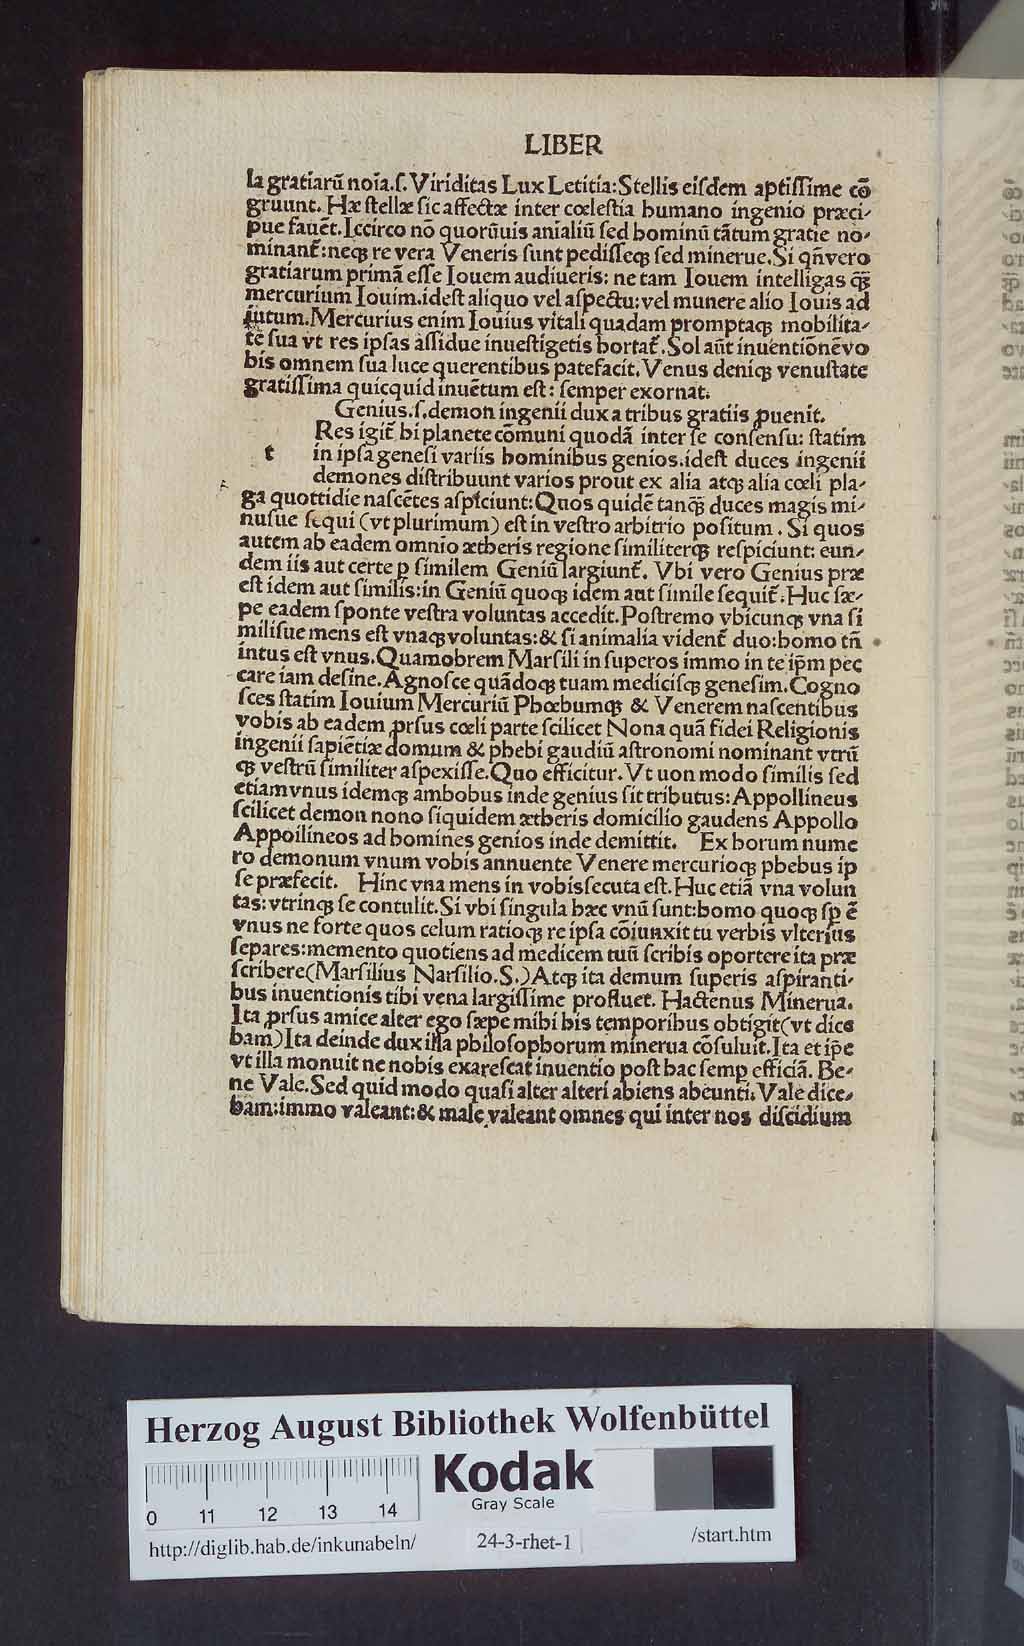 LIBER
la gratiarū noīa.ſ. Viriditas Lux Letitia:Stellis eiſdem aptiſſime cō
gruunt. Hæ ſtellæ ſic affectæ inter cœleſtia humano ingenio præci-
pue fauēt.Iccirco nō quorūuis anialiū ſed hominū tātum gratie no-
minant̄:neqꝫ re vera Veneris ſunt pediſſeqꝫ ſed minerue.Si qn̄vero
gratiarum primā eſſe Iouem audiueris: ne tam Iouem intelligas qꝫ̄
mercurium Iouim.ideſt aliquo vel aſpectu:vel munere alio Iouis ad
iutum.Mercurius enim Iouius vitali quadam promptaqꝫ mobilita-
te ſua vt res ipſas aſſidue inueſtigetis hortat̄.Sol aūt inuentionēvo
bis omnem ſua luce querentibus patefacit. Venus deniqꝫ venuſtate
gratiſſima quicquid inuētum eſt: ſemper exornat.
Genius.ſ.demon ingenii dux a tribus gratiis ꝓuenit.
Res igit̄ hi planete cōmuni quodā inter ſe conſenſu: ſtatim
t in ipſa geneſi variis hominibus genios.ideſt duces ingenii
demones diſtribuunt varios prout ex alia atqꝫ alia cœli pla-
ga quottidie naſcētes aſpiciunt:Quos quidē tanqꝫ̄ duces magis mi-
nuſue ſequi (vt plurimum) eſt in veſtro arbitrio poſitum . Si quos
autem ab eadem omnio ætheris regione ſimiliterqꝫ reſpiciunt: eun-
dem iis aut certe ꝑ ſimilem Geniū largiunt̄. Vbi vero Genius præ
eſt idem aut ſimilis:in Geniū quoqꝫ idem aut ſimile ſequit̄. Huc ſæ-
pe eadem ſponte veſtra voluntas accedit.Poſtremo vbicunqꝫ vna ſi
miliſue mens eſt vnaqꝫ voluntas:& ſi animalia vident̄ duo:homo tn̄
intus eſt vnus.Quamobrem Marſili in ſuperos immo in te ip̄m pec
care iam deſine.Agnoſce quādoqꝫ tuam mediciſqꝫ geneſim.Cogno
ſces ſtatim Iouium Mercuriū Phœbumqꝫ & Venerem naſcentibus
vobis ab eadem ꝓrſus cœli parte ſcilicet Nona quā fidei Religionis
ingenii ſapiētiæ domum & phebi gaudiū aſtronomi nominant vtrū
qꝫ veſtrū ſimiliter aſpexiſſe.Quo efficitur.Vt uon modo ſimilis ſed
etiamvnus idemqꝫ ambobus inde genius ſit tributus:Appollineus
ſcilicet demon nono ſiquidem ætheris domicilio gaudens Appollo
Appoilineos ad homines genios inde demittit. Ex horum nume
ro demonum vnum vobis annuente Venere mercurioqꝫ phebus ip
ſe præfecit. Hinc vna mens in vobisſecuta eſt.Huc etiā vna volun
tas:vtrinqꝫ ſe contulit.Si vbi ſingula hæc vnū ſunt:homo quoqꝫ ſꝑ ē
vnus ne forte quos celum ratioqꝫ re ipſa cōiunxit tu verbis vlterius
ſepares:memento quotiens ad medicem tuū ſcribis oportere ita præ
ſcribere(Marſilius Narſilio.S.)Atqꝫ ita demum ſuperis aſpiranti-
bus inuentionis tibi vena largiſſime profluet. Hactenus Minerua.
Ita ꝓrſus amice alter ego ſæpe mihi his temporibus obtigit(vt dice
bam)Ita deinde dux illa philoſophorum minerua cōſuluit.Ita et ip̄e
vt illa monuit ne nobis exareſcat inuentio poſt hac ſemꝑ efficiā. Be-
ne Vale.Sed quid modo quaſi alter alteri abiens abeunti. Vale dice-
bam:immo valeant:& male valeant omnes qui inter nos diſcidium
Herzog August Bibliothek Wolfenbüttel
Kodak
Gray Scale
0 11 12 13 14
http://diglib.hab.de/inkunabeln/ 24-3-rhet-1 /start.htm